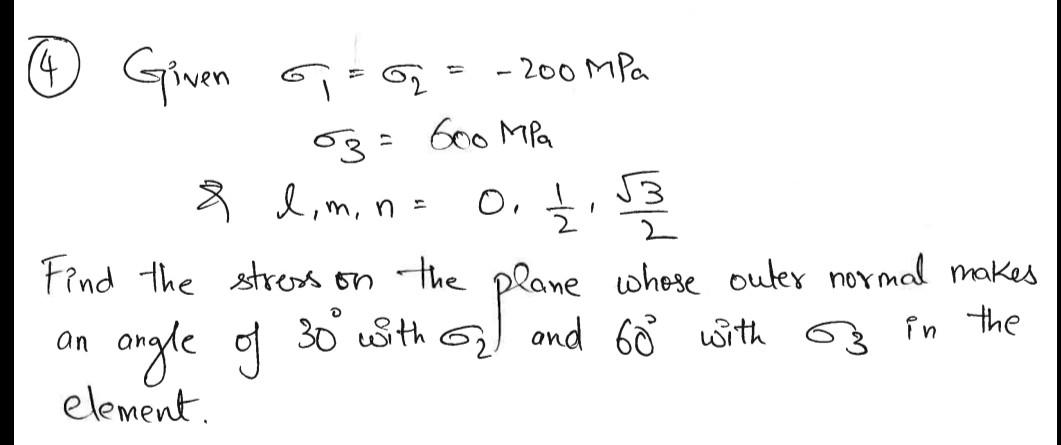 ④ Given σ1 = σ2 = -200 MPa
σ3 = 600 MPa
& l, m, n = 0, 1/2, √3/2
Find the stress on the plane whose outer normal makes
an angle of 30° with σ2 and 60° with σ3 in the
element.